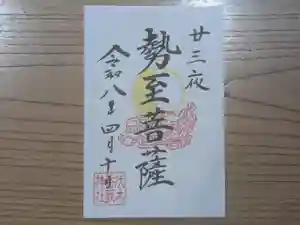 廿三夜
勢至菩薩
令和八年四月十